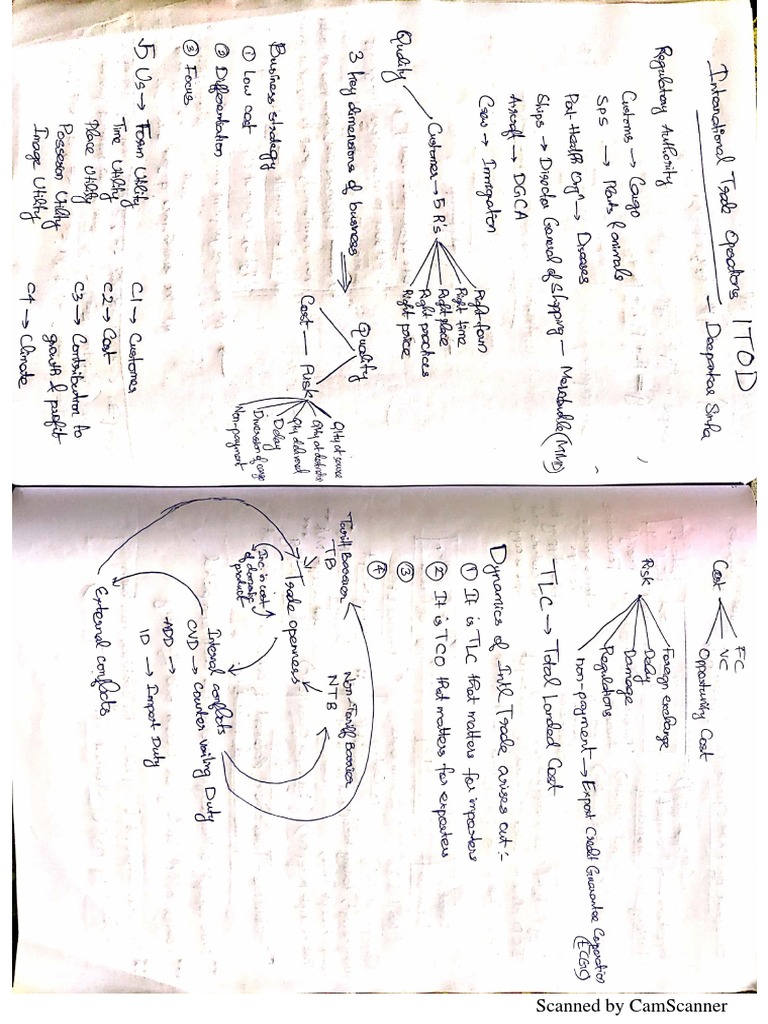 ITOD
International Trade Operations - Deepankar Sinha
Regulatory Authority
Customs → Cargo
SPS → Plants & animals
Port Health Orgn → Diseases
Ships → Director General of Shipping - Mercantile (MMD)
Aircraft → DGCA
Crew → Immigration
Quality
Customer → 5 R's
Right form
Right time
Right place
Right practices
Right price
3 key dimensions of business ⇒
Quality
Cost - Risk
Qlty at source
Qlty at destinatn
Qty delivered
Delay
Diversion of cargo
Non-payment
Business strategy
① Low cost
② Differentiation
③ Focus
5 Us → Form Utility
Time Utility
Place Utility
Possession Utility
Image Utility
C1 → Customer
C2 → Cost
C3 → Contribution to
growth & profit
C4 → Climate
Cost
FC
VC
Opportunity Cost
Risk
Foreign exchange
Delay
Damage
Regulations
non-payment → Export Credit Guarantee Corporation
(ECGC)
TLC → Total Landed Cost
Dynamics of Intl Trade arises out :-
① It is TLC that matters for importers
② It is TCO that matters for exporters
③
④
Tariff Barrier
TB
Non-Tariff Barrier
NTB
Trade openness
(Inc in cost
of domestic
product)
Internal conflicts
CVD → Counter vailing Duty
ADD →
ID → Import Duty
External conflicts
Scanned by CamScanner